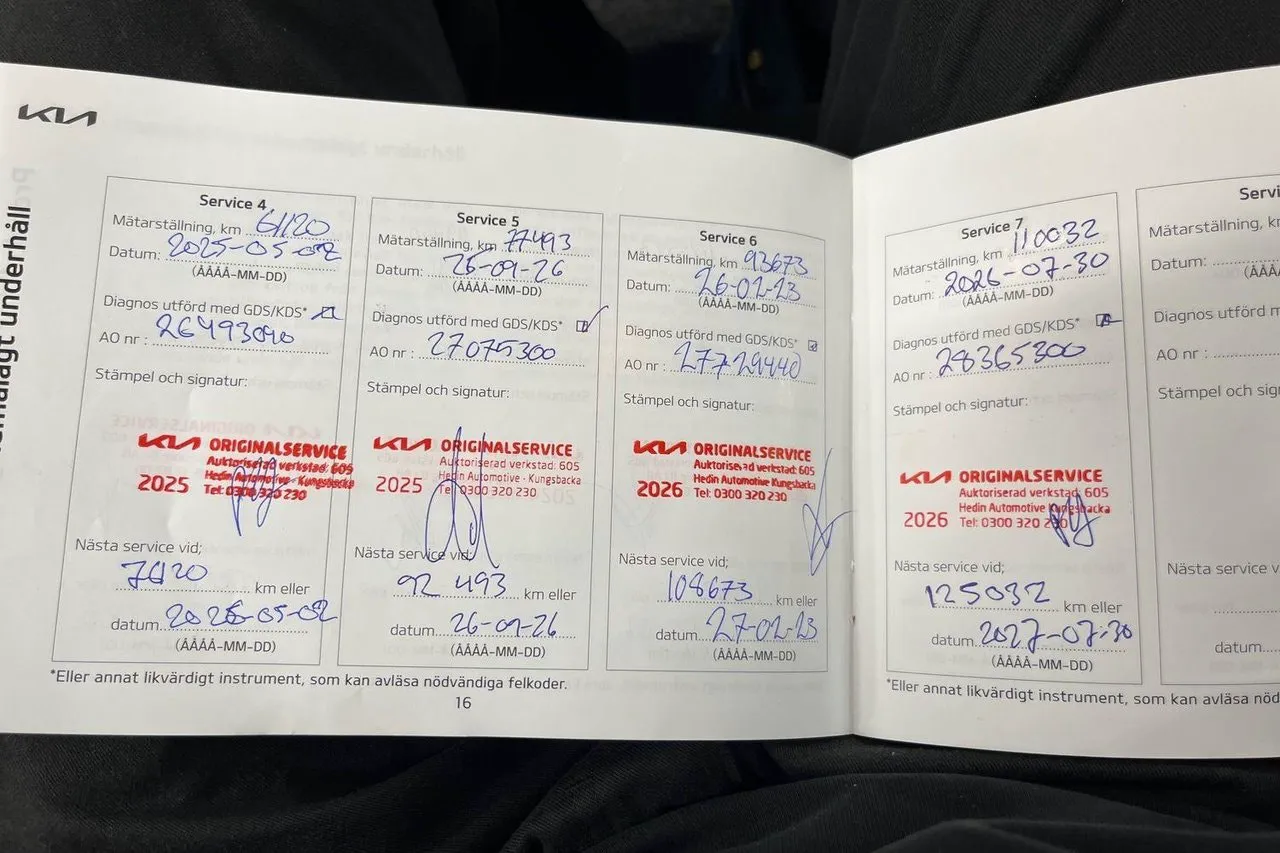 KIA
Service 4
Mätarställning, km 61120
Datum: 2025-05-02
(ÅÅÅÅ-MM-DD)
Diagnos utförd med GDS/KDS*
AO nr : 26493040
Stämpel och signatur:
KIA ORIGINALSERVICE
Auktoriserad verkstad: 605
Hedin Automotive - Kungsbacka
2025 Tel: 0300 320 230
Nästa service vid;
km eller
datum 2026-05-02
(ÅÅÅÅ-MM-DD)
Service 5
Mätarställning, km 77493
Datum: 26-09-26
(ÅÅÅÅ-MM-DD)
Diagnos utförd med GDS/KDS*
AO nr : 27075300
Stämpel och signatur:
KIA ORIGINALSERVICE
Auktoriserad verkstad: 605
Hedin Automotive - Kungsbacka
2025 Tel: 0300 320 230
Nästa service vid;
92 493 km eller
datum 26-09-26
(ÅÅÅÅ-MM-DD)
Service 6
Mätarställning, km 93673
Datum: 26-02-23
(ÅÅÅÅ-MM-DD)
Diagnos utförd med GDS/KDS*
AO nr : 27729440
Stämpel och signatur:
KIA ORIGINALSERVICE
Auktoriserad verkstad: 605
Hedin Automotive Kungsbacka
2026 Tel: 0300 320 230
Nästa service vid;
108673 km eller
datum 27-02-23
(ÅÅÅÅ-MM-DD)
*Eller annat likvärdigt instrument, som kan avläsa nödvändiga felkoder.
16
Service 7
Mätarställning, km 110032
Datum: 2026-07-30
(ÅÅÅÅ-MM-DD)
Diagnos utförd med GDS/KDS*
AO nr : 28365300
Stämpel och signatur:
KIA ORIGINALSERVICE
Auktoriserad verkstad: 605
Hedin Automotive Kungsbacka
2026 Tel: 0300 320 230
Nästa service vid;
125032 km eller
datum 2027-07-30
(ÅÅÅÅ-MM-DD)
*Eller annat likvärdigt instrument, som kan avläsa
Mätarställning, k
Datum:
Diagnos utförd
AO nr :
Stämpel och
Nästa service
datum
underhåll